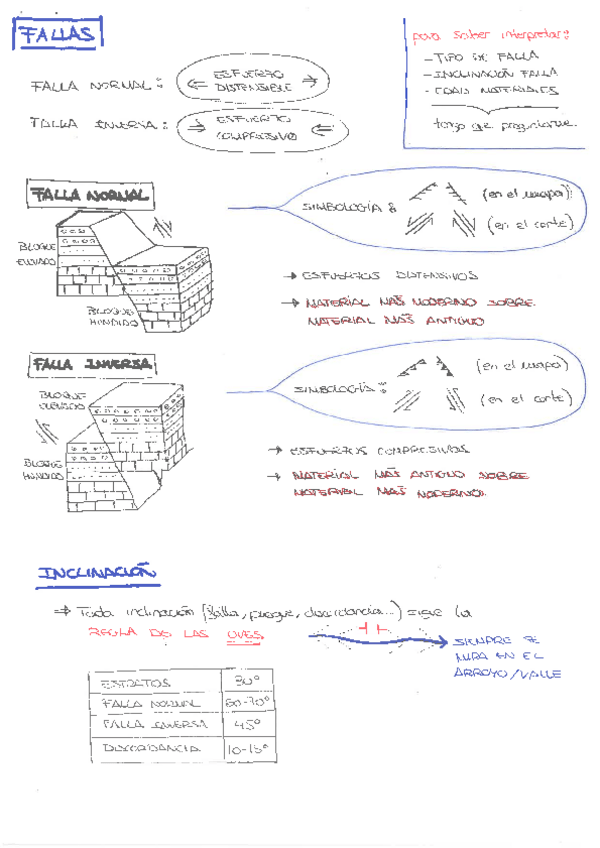 FALLAS
para saber interpretar:
- TIPO DE FALLA
- INCLINACIÓN FALLA
- EDAD MATERIALES
tengo que preguntarme
FALLA NORMAL: ESFUERZO DISTENSIBLE
FALLA INVERSA: ESFUERZO COMPRESIVO
FALLA NORMAL
SIMBOLOGÍA: (en el mapa)
(en el corte)
BLOQUE ELEVADO
BLOQUE HUNDIDO
→ ESFUERZOS DISTENSIVOS
→ MATERIAL MÁS MODERNO SOBRE
MATERIAL MÁS ANTIGUO
FALLA INVERSA
SIMBOLOGÍA: (en el mapa)
(en el corte)
BLOQUE ELEVADO
BLOQUE HUNDIDO
→ ESFUERZOS COMPRESIVOS
→ MATERIAL MÁS ANTIGUO SOBRE
MATERIAL MÁS MODERNO
INCLINACIÓN
⇒ Toda inclinación (falla, pliegue, discordancia...) sigue la
REGLA DE LAS UVES
SIEMPRE SE
MIRA EN EL
ARROYO/VALLE
ESTRATOS 30°
FALLA NORMAL 60-70°
FALLA INVERSA 45°
DISCORDANCIA 10-15°